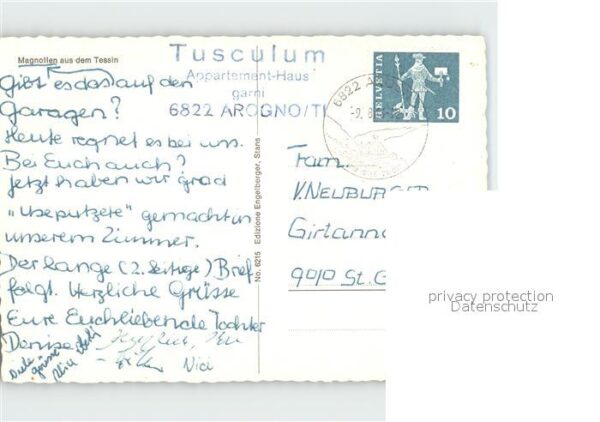 Magnolien aus dem Tessin
Tusculum
Appartement-Haus
garni
6822 AROGNO/TI
HELVETIA
10
6822
Gibt es das auf den
Garagen?
Heute regnet es bei uns.
Bei Euch auch?
Jetzt haben wir grad
„Useputzete" gemacht in
unserem Zimmer.
Der lange (2. seitige) Brief
folgt. Herzliche Grüsse
Eure Euch liebende Tochter
Denise
Nici
No. 6215 Edizione Engelberger, Stans
Fam.
V. NEUBURGER
Girtann
9010 St. G
privacy protection
Datenschutz